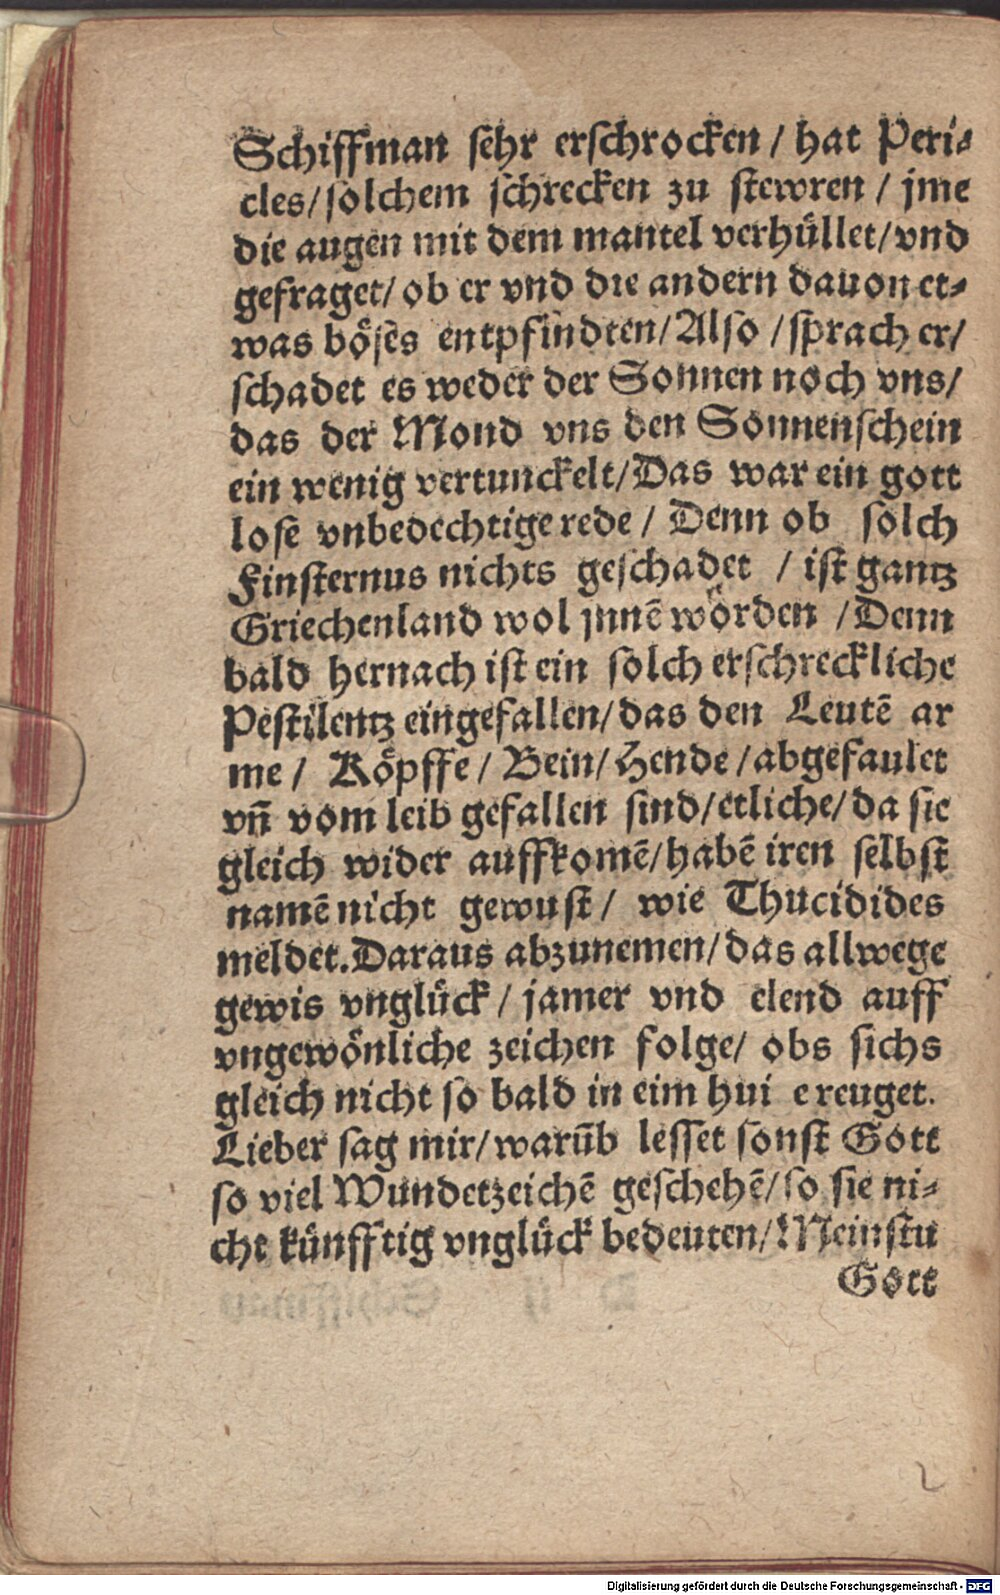 Schiffman sehr erschrocken / hat Peri⸗
cles/solchem schrecken zu stewren / jme
die augen mit dem mantel verhüllet/vnd
gefraget/ ob er vnd die andern dauon et⸗
was böses entpfindten/Also /sprach er/
schadet es weder der Sonnen noch vns/
das der Mond vns den Sonnenschein
ein wenig vertunckelt/Das war ein gott
lose vnbedechtige rede / Denn ob solch
Finsternus nichts geschadet / ist gantz
Griechenland wol jnnē worden /Denn
bald hernach ist ein solch erschreckliche
Pestilentz eingefallen/das den Leutē ar
me / Köpffe / Bein/ Hende /abgefaulet
vn̄ vom leib gefallen sind/etliche/da sie
gleich wider auffkomē/habē iren selbst
namē nicht gewust / wie Thucidides
meldet.Daraus abzunemen/das allwege
gewis vnglück / jamer vnd elend auff
vngewönliche zeichen folge/ obs sichs
gleich nicht so bald in eim hui ereuget.
Lieber sag mir/warūb lesset sonst Gott
so viel Wundetzeichē geschehē/so sie ni⸗
cht künfftig vnglück bedeuten/Meinstu
Gott
2
Digitalisierung gefördert durch die Deutsche Forschungsgemeinschaft - DFG